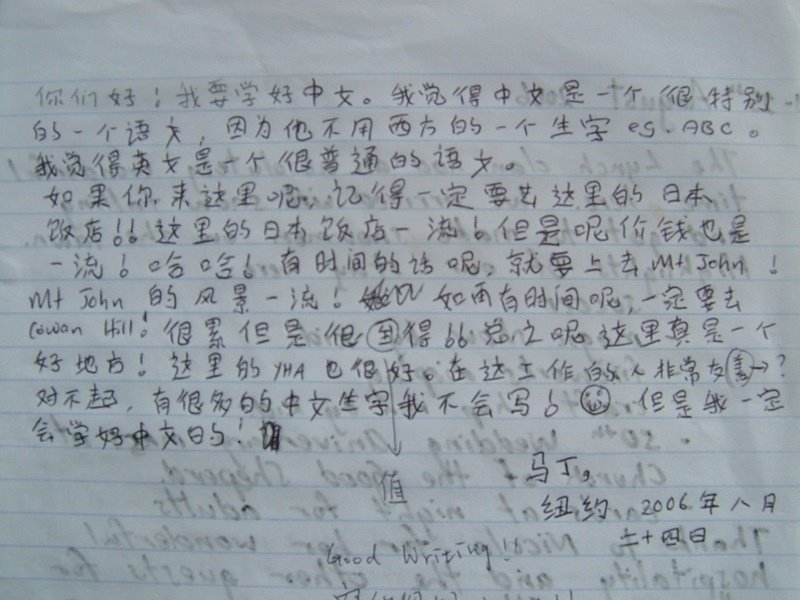 你们好！我要学好中文。我觉得中文是一个很特别
的一个语文，因为他不用西方的一个生字 eg. ABC。
我觉得英文是一个很普通的语文。
如果你来这里呢，记得一定要去这里的日本
饭店！！这里的日本饭店一流！但是呢价钱也是
一流！哈哈！有时间的话呢，就要上去 Mt John！
Mt John 的风景一流！如再有时间呢一定要去
Cowan Hill！很累但是很得！！总之呢这里真是一个
好地方！这里的 YHA 也很好。在这工作的人非常友善→？
对不起，有很多的中文生字我不会写！☺ 但是我一定
会学好中文的！
值
马丁，
纽约，2006年八月
二十四日
Good Writing!!